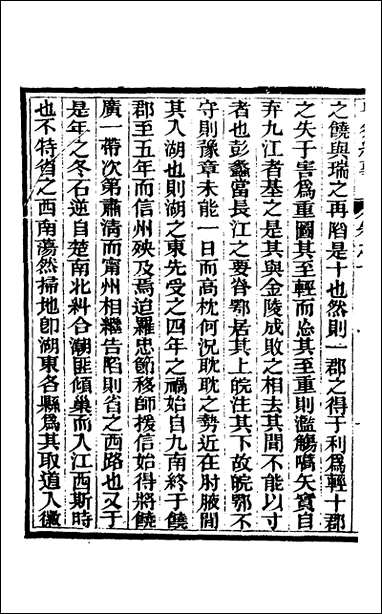 之饒與瑞之再陷是十也然則一郡之得于利爲輕十郡
之失于害爲重圖其至輕而忘其至重則濫觴嚆矢實自
弃九江者基之是其與金陵成敗之相去其間不能以寸
者也彭蠡當長江之要膂鄂居其上皖注其下故皖鄂不
守則豫章未能一日而高枕何況耽耽之勢近在肘腋間
其入湖也則湖之東先受之四年之禍始自九南終于饒
郡至五年而信州殃及焉迨羅忠節移師援信始得將饒
廣一帶次第肅淸而甯州相繼告陷則省之西路也又于
是年之冬石逆自楚南北糾合潮匪傾巢而入江西斯時
也不特省之西南蕩然掃地卽湖東各縣爲其取道入徽